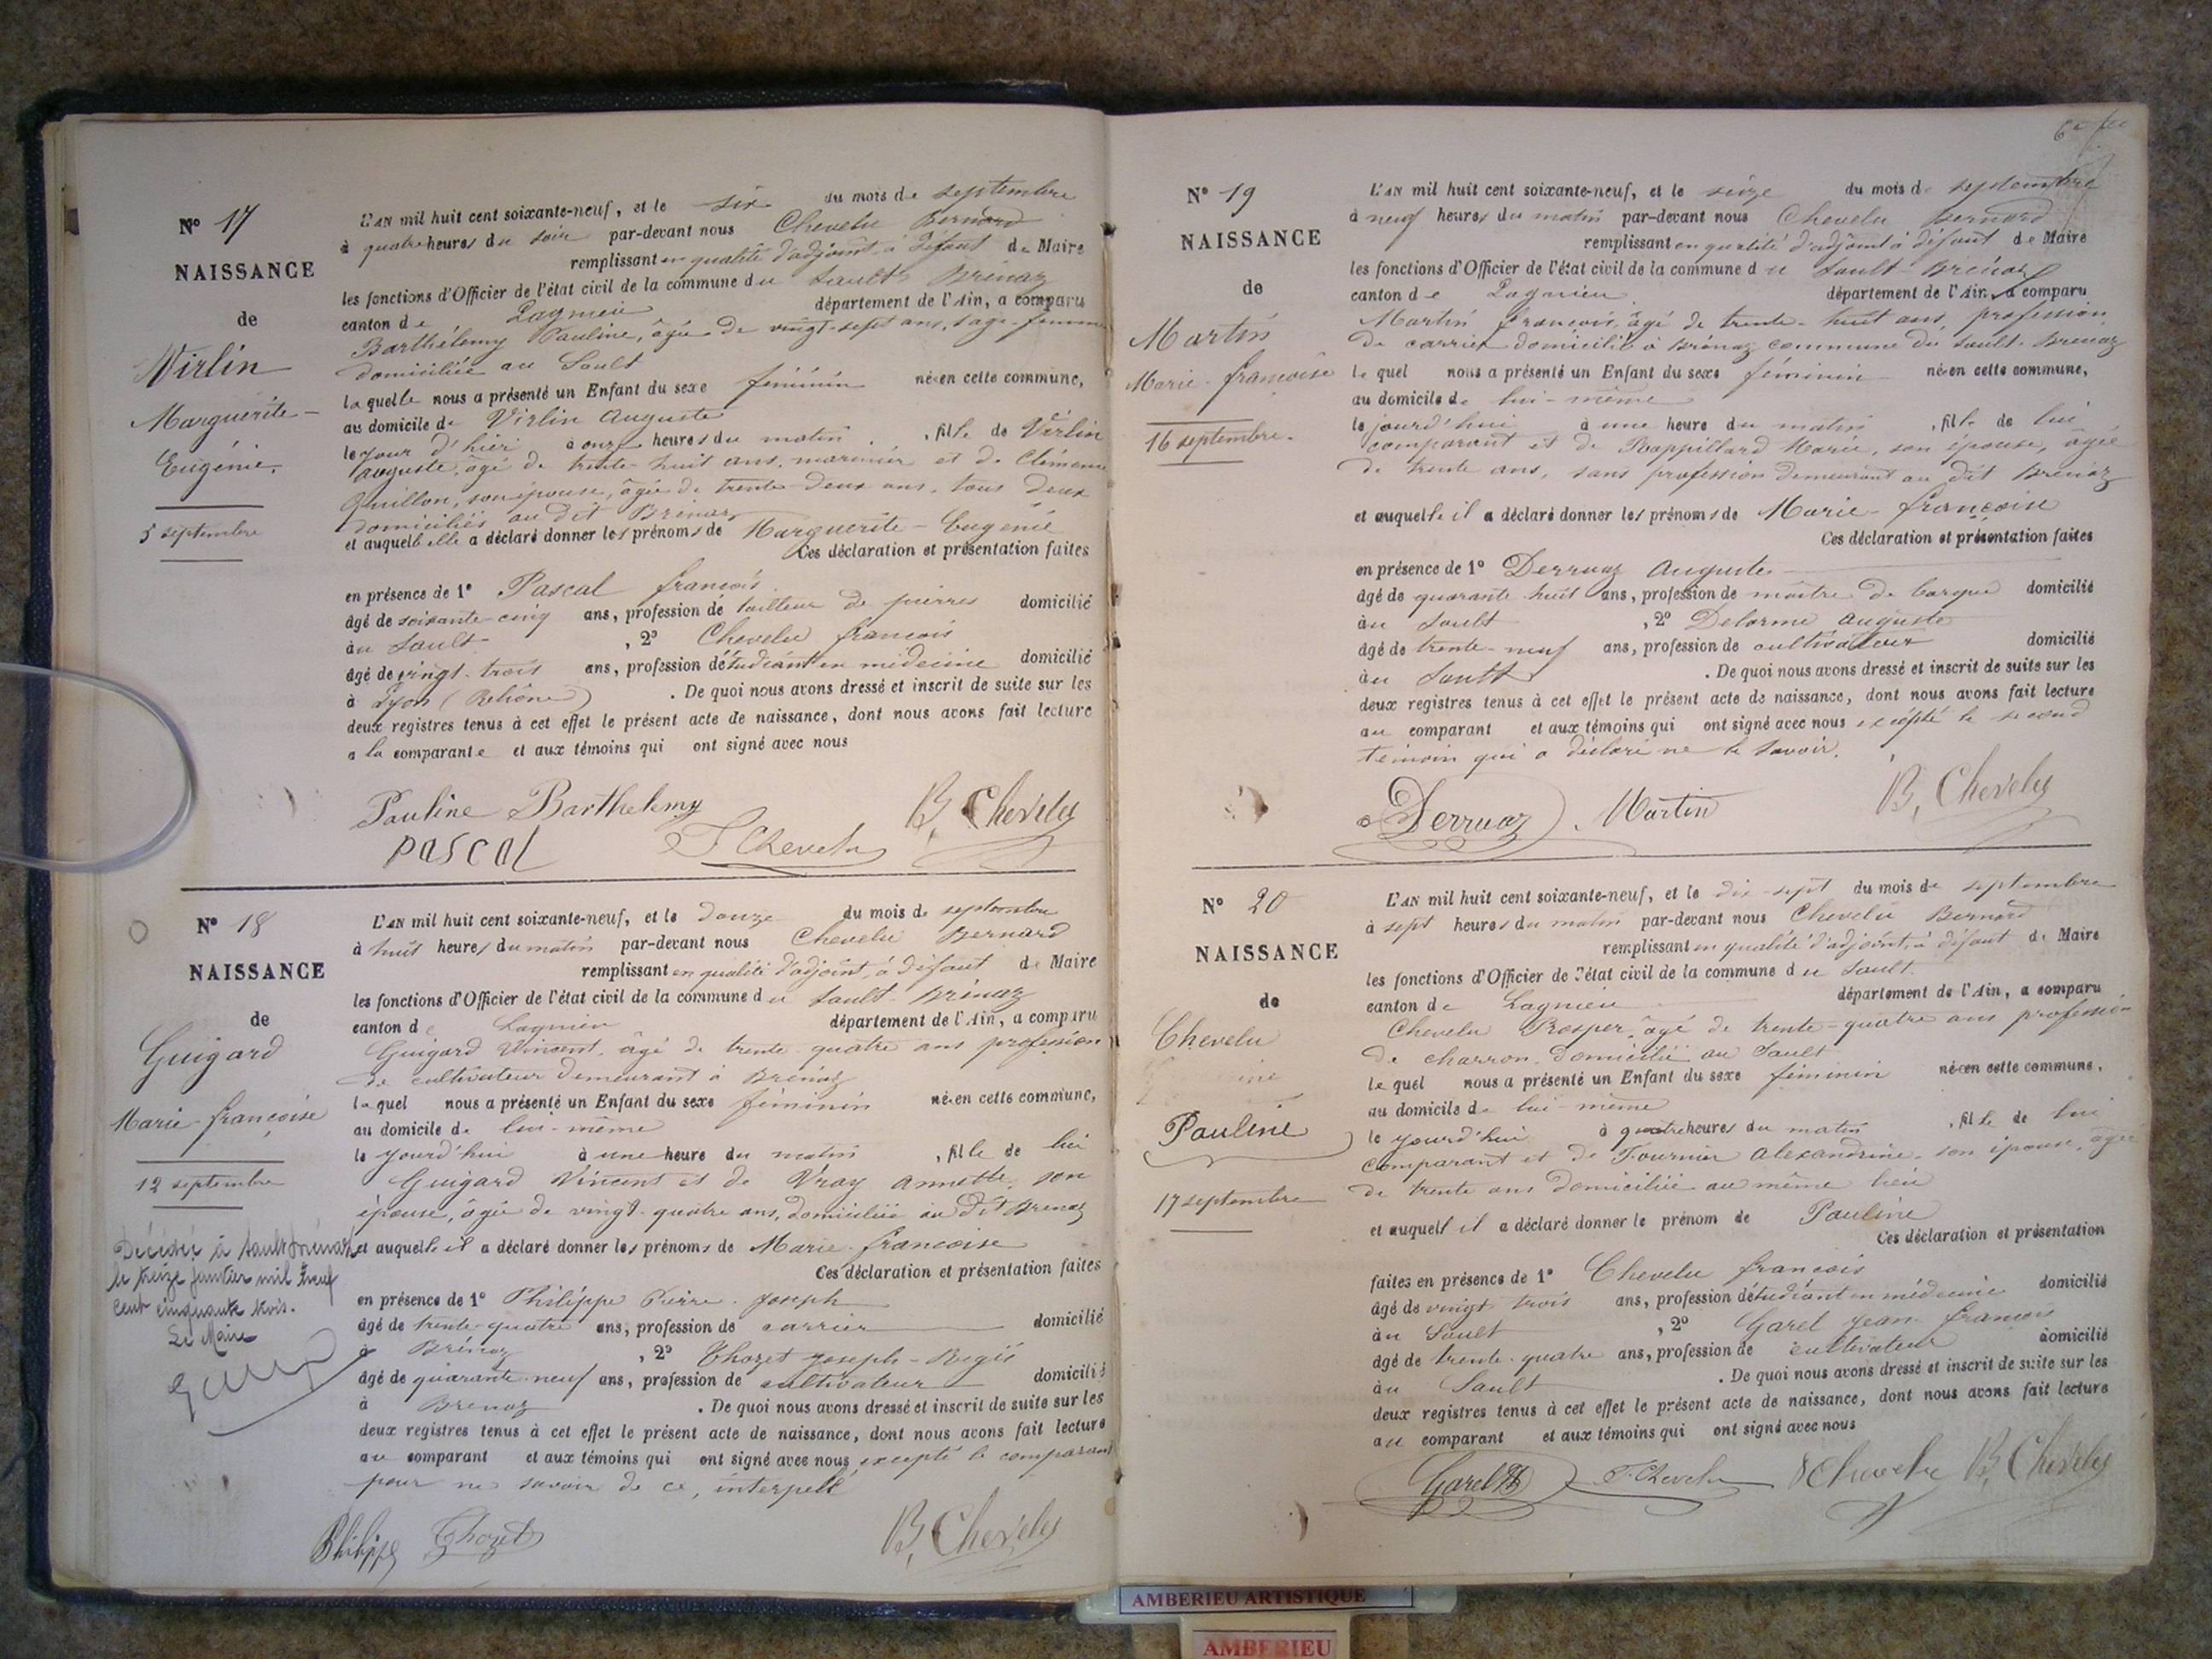 N° 17
NAISSANCE
de
Virlin
Marguerite-
Eugénie.
5 septembre
L'AN mil huit cent soixante-neuf, et le six du mois de septembre
à quatre heures du soir par-devant nous Chevelu Bernard
remplissant en qualité d'adjoint à défaut de Maire
les fonctions d'Officier de l'état civil de la commune du Sault-Brénaz
canton de Lagnieu département de l'Ain, a comparu
Barthélemy Pauline, âgée de vingt-sept ans, sage-femme
domiciliée au Sault
laquelle nous a présenté un Enfant du sexe féminin né en cette commune,
au domicile de Virlin Auguste
le jour d'hier à onze heures du matin, fille de Virlin
Auguste, âgé de trente-huit ans, marinier et de Clémence
Quillon, son épouse, âgée de trente-deux ans, tous deux
domiciliés au dit Brénaz
et auquelle elle a déclaré donner les prénoms de Marguerite-Eugénie
Ces déclaration et présentation faites
en présence de 1° Pascal françois
âgé de soixante-cinq ans, profession de tailleur de pierres domicilié
au Sault , 2° Chevelu françois
âgé de vingt-trois ans, profession d'étudiant en médecine domicilié
à Lyon (Rhône) . De quoi nous avons dressé et inscrit de suite sur les
deux registres tenus à cet effet le présent acte de naissance, dont nous avons fait lecture
a la comparante et aux témoins qui ont signé avec nous
Pauline Barthelemy
B, Chevelu
pascal
F Chevelu
N° 18
NAISSANCE
de
Guigard
Marie-françoise
12 septembre
Décédée à Sault Brénaz
le treize janvier mil neuf
cent cinquante trois.
Le Maire
L'AN mil huit cent soixante-neuf, et le douze du mois de septembre
à huit heures du matin par-devant nous Chevelu Bernard
remplissant en qualité d'adjoint, à défaut de Maire
les fonctions d'Officier de l'état civil de la commune du Sault-Brénaz
canton de Lagnieu département de l'Ain, a comparu
Guigard Vincent, âgé de trente-quatre ans profession
de cultivateur demeurant à Brénaz
lequel nous a présenté un Enfant du sexe féminin né en cette commune,
au domicile de lui-même
le jourd'hui à une heure du matin , fille de lui
Guigard Vincent et de Vray Annette, son
épouse, âgée de vingt-quatre ans, domiciliée au dit Brénaz
et auquelle il a déclaré donner les prénoms de Marie-françoise
Ces déclaration et présentation faites
en présence de 1° Philippe Pierre-Joseph
âgé de trente-quatre ans, profession de carrier domicilié
à Brénaz , 2° Thozet Joseph-Régis
âgé de quarante-neuf ans, profession de cultivateur domicilié
à Brénaz . De quoi nous avons dressé et inscrit de suite sur les
deux registres tenus à cet effet le présent acte de naissance, dont nous avons fait lecture
au comparant et aux témoins qui ont signé avec nous excepté le comparant
pour ne savoir de ce, interpellé
Philippe Thozet B, Chevelu
N° 19
NAISSANCE
de
Martin
Marie-françoise
16 septembre.
L'AN mil huit cent soixante-neuf, et le seize du mois de septembre
à neuf heures du matin par-devant nous Chevelu Bernard
remplissant en qualité d'adjoint à défaut de Maire
les fonctions d'Officier de l'état civil de la commune du Sault-Brénaz
canton de Lagnieu département de l'Ain, a comparu
Martin françois, âgé de trente-huit ans, profession
de carrier domicilié à Brénaz commune du Sault-Brénaz
lequel nous a présenté un Enfant du sexe féminin né en cette commune,
au domicile de lui-même
le jourd'hui à une heure du matin , fille de lui
comparant et de Rappillard Marie, son épouse, âgée
de trente ans, sans profession demeurant au dit Brénaz
et auquelle il a déclaré donner les prénoms de Marie-françoise
Ces déclaration et présentation faites
en présence de 1° Derruaz Auguste
âgé de quarante huit ans, profession de maître de barque domicilié
au Sault , 2° Delorme Auguste
âgé de trente-neuf ans, profession de cultivateur domicilié
au Sault . De quoi nous avons dressé et inscrit de suite sur les
deux registres tenus à cet effet le présent acte de naissance, dont nous avons fait lecture
au comparant et aux témoins qui ont signé avec nous excépté le second
témoin qui a déclaré ne le savoir.
Derruaz Martin B, Chevelu
N° 20
NAISSANCE
de
Chevelu
Pauline
17 septembre
L'AN mil huit cent soixante-neuf, et le dix-sept du mois de septembre
à sept heures du matin par-devant nous Chevelu Bernard
remplissant en qualité d'adjoint, à défaut de Maire
les fonctions d'Officier de l'état civil de la commune du Sault
canton de Lagnieu département de l'Ain, a comparu
Chevelu Prosper, âgé de trente-quatre ans profession
de charron domicilié au Sault
lequel nous a présenté un Enfant du sexe féminin né en cette commune,
au domicile de lui-même
le jourd'hui à quatre heures du matin , fille de lui
comparant et de Fournier Alexandrine, son épouse, âgée
de trente ans domiciliée au même lieu
et auquelle il a déclaré donner le prénom de Pauline
Ces déclaration et présentation
faites en présence de 1° Chevelu françois
âgé de vingt trois ans, profession d'étudiant en médecine domicilié
au Sault , 2° Garel Jean-françois
âgé de trente-quatre ans, profession de cultivateur domicilié
au Sault . De quoi nous avons dressé et inscrit de suite sur les
deux registres tenus à cet effet le présent acte de naissance, dont nous avons fait lecture
au comparant et aux témoins qui ont signé avec nous
Garel F. Chevelu Chevelu B, Chevelu
AMBERIEU ARTISTIQUE
AMBERIEU